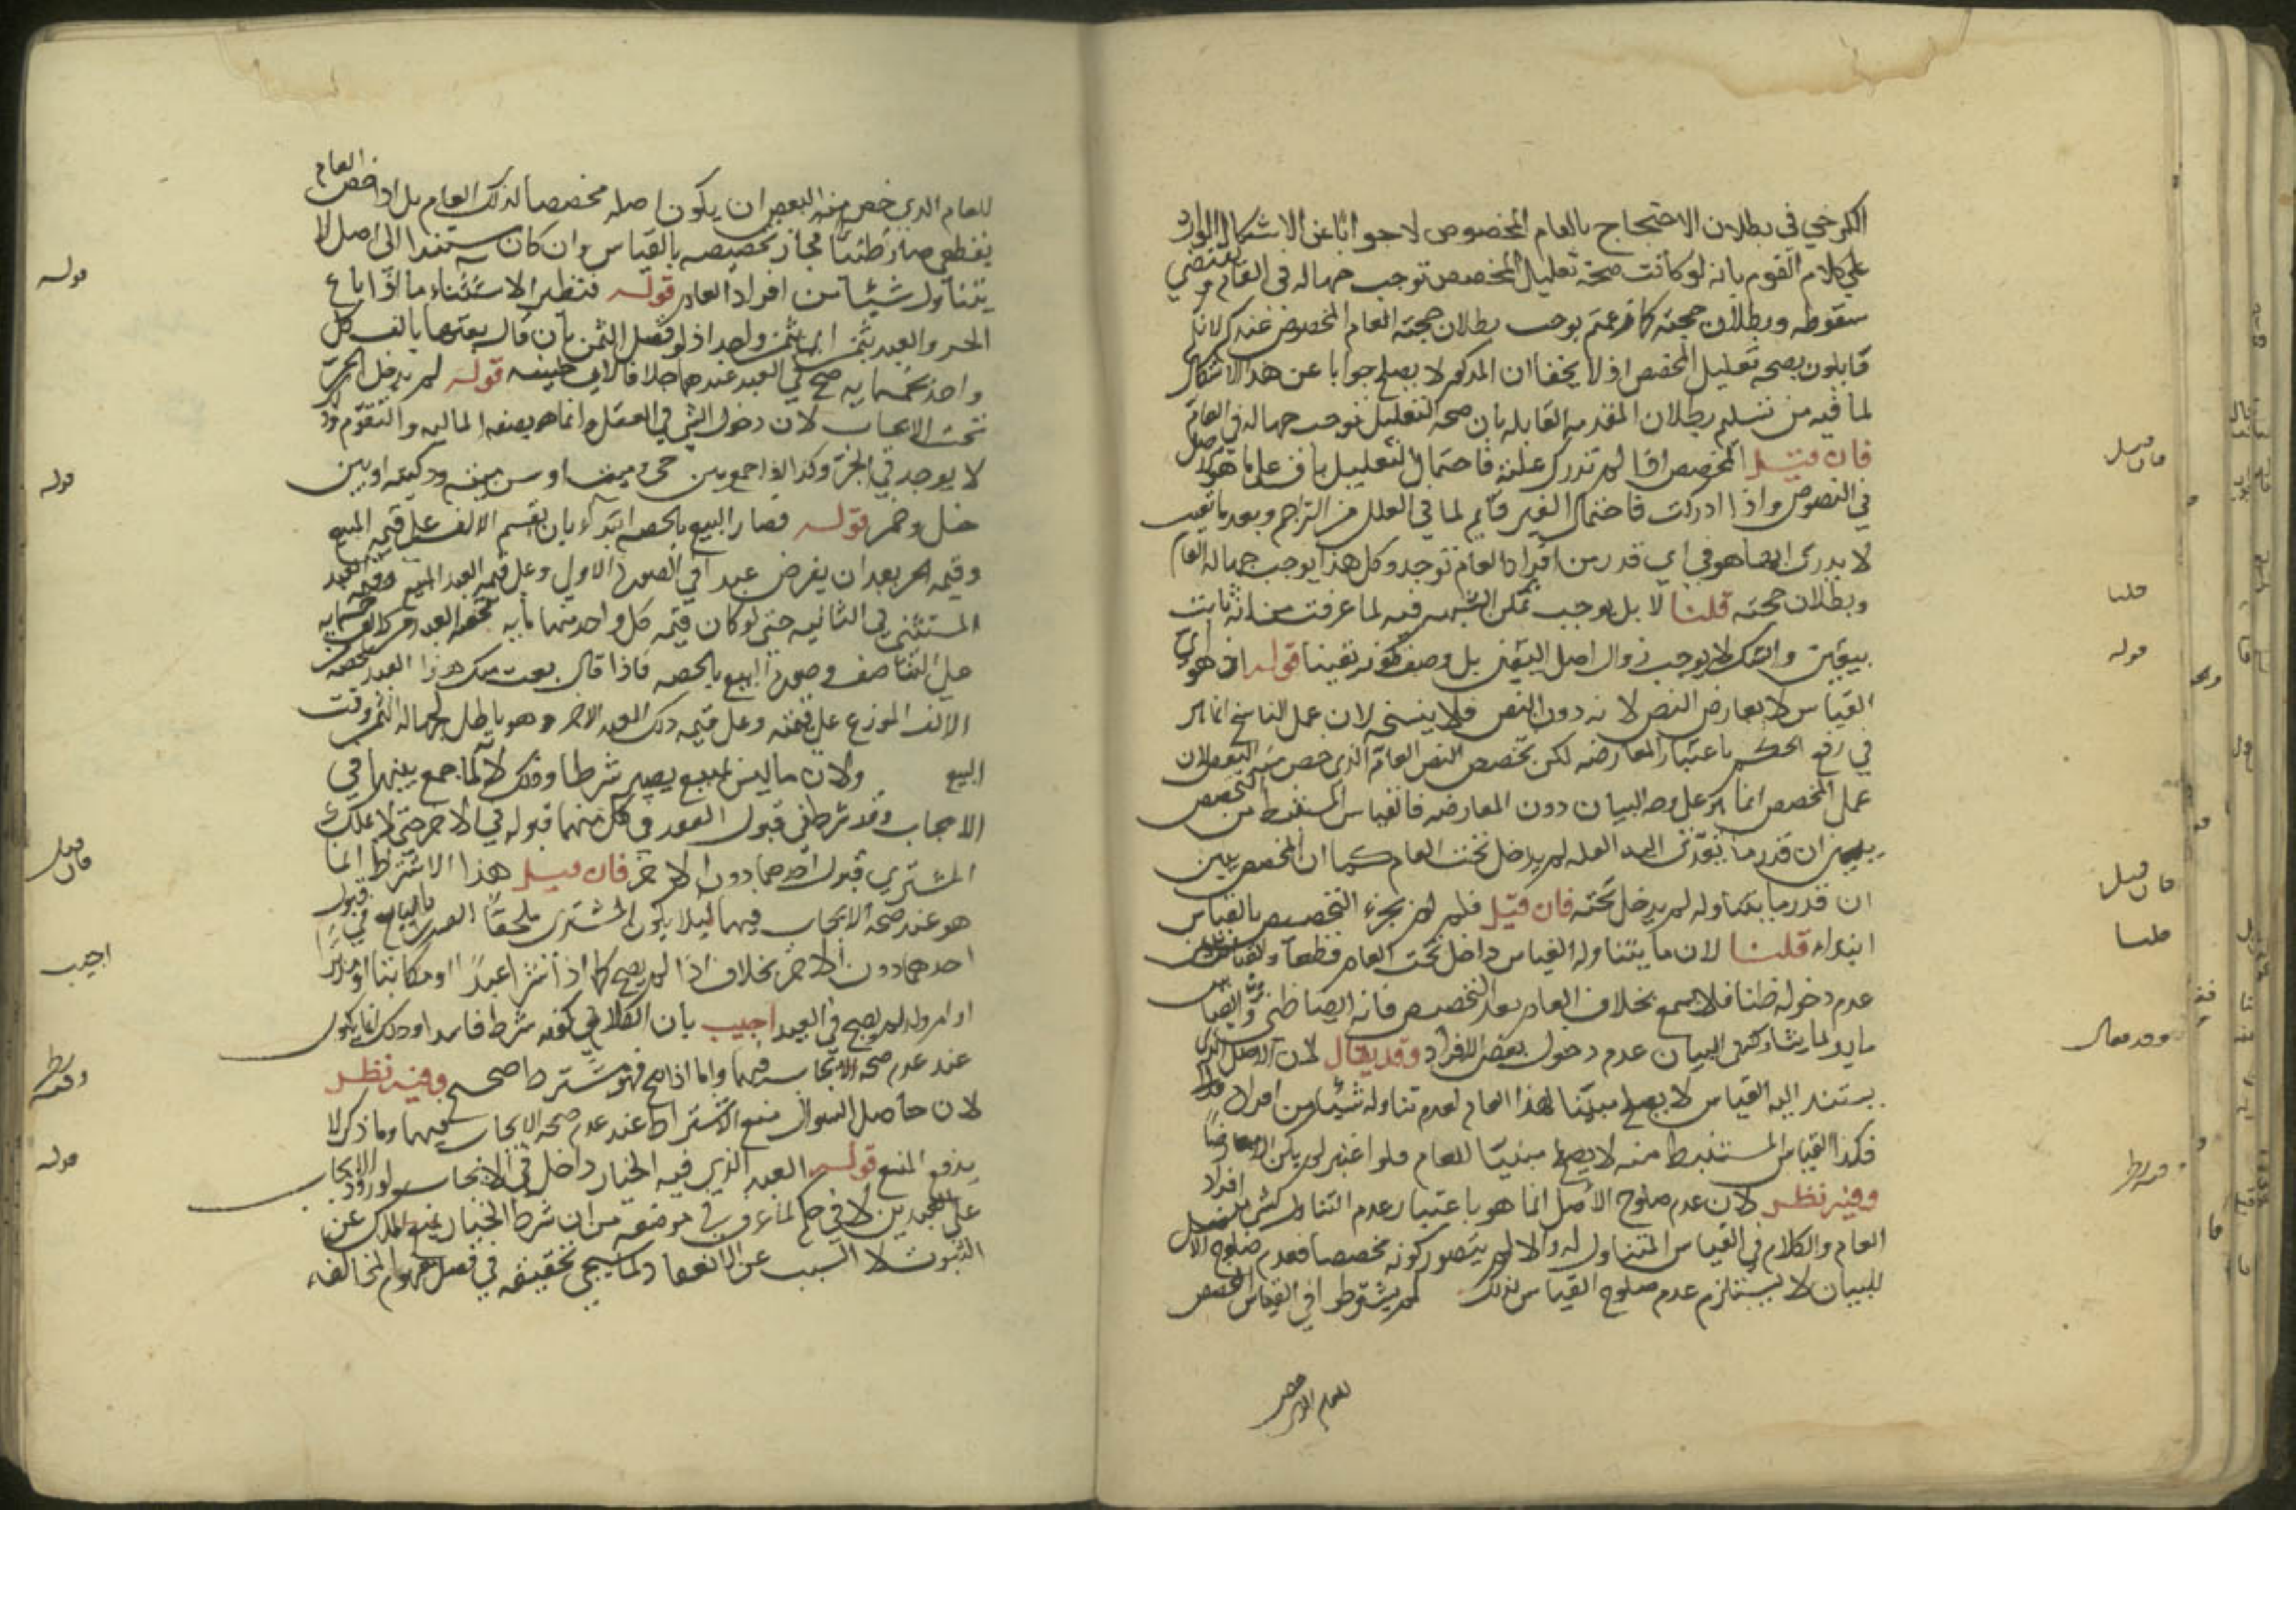 الكرخي في بطلان الاحتجاج بالعام المخصوص لا جوابا عن الاشكال الوارد
على كلام القوم بانه لو كانت صحة تعليل المخصص توجب جهالة في العام وتقتضي
سقوطه وبطلان حجته كما زعمتم يوجب بطلان حجته العام المخصوص عندكم لانكم
قايلون بصحه تعليل المخصص اذ لا يخفا ان المذكور لا يصلح جوابا عن هذا الاشكال
لما فيه من تسليم بطلان المقدمه القايله بان صحه التعليل توجب جهاله في العام
فان قيل المخصص اذا لم تدرك علته فاحتمال التعليل باق على ما هو الاصل
في النصوص واذا ادركت فاحتمال الغير قايم لما في العلل من التزاحم وبعد ما تعينت
لا يدرى انها هو في اي قدر من افراد العام توجد وكل هذا يوجب جهاله العام
وبطلان حجته قلنا لا بل يوجب تمكن الشبهه فيه لما عرفت من انه ثابت
بيقين والشك لا يوجب زوال اصل اليقين بل وصف كونه يقينا قوله اذ هو اي
القياس لا يعارض النص لانه دون النص فلا ينسخه لان عمل الناسخ انما هو
في رفع الحكم باعتبار المعارضه لكن يخصص النص العام الذي خص منه البعض لان
عمل المخصص انما هو على وجه البيان دون المعارضه فالقياس المستنبط من المخصص
يبين ان قدر ما تعدى اليه العله لم يدخل تحت العام كما ان المخصص يبين
ان قدر ما يتناوله لم يدخل تحته فان قيل فلم لم يجز التخصيص بالقياس
ابتداء قلنا لان ما يتناوله القياس داخل تحت العام قطعا والقياس يبين
عدم دخوله ظنا فلا يسمع بخلاف العام بعد التخصيص فانه ايضا ظني وايضا
مايد لما يشاركه في البيان عدم دخول بعض الافراد وقد يقال لان الاصل الذي
يستند اليه القياس لا يصلح مبينا لهذا العام لعدم تناوله شيئا من افراده
فكذا القياس المستنبط منه لا يصلح مبينا للعام فلو اعتبر لم يكن الا معارضا
وفيه نظر لان عدم صلوح الاصل انما هو باعتبار عدم التناول لشيء من افراد
العام والكلام في القياس المتناول له والا لم يتصور كونه مخصصا فعدم صلوح الاصل
للبيان لا يستلزم عدم صلوح القياس لذلك لم يشترطوا في القياس المخصص
للعام الذي خص
فان قيل
قلنا
قوله
فان قيل
قلنا
وقد يقال
وفيه نظر
للعام الذي خص منه البعض ان يكون اصله مخصصا لذلك العام بل اذا خص العام
بقطعي صار ظنيا فجاز تخصيصه بالقياس وان كان مستندا الى اصل لا
يتناول شيئا من افراد العام قوله فنظير الاستثناء ما اذا باع
الحر والعبد بثمن اي بثمن واحد اذ لو فصل الثمن بان قال بعتهما بالف كل
واحد بخمسمايه صح في العبد عندهما خلافا لابي حنيفه قوله لم يدخل الحر
تحت الايجاب لان دخول الشي في العقد انما هو بصفه الماليه والتقوم وذا
لا يوجد في الحر وكذا اذا جمع بين حي وميت او بين ميته وذكيه او بين
خل وخمر قوله فصار البيع بالحصه ابتداء بان يقسم الالف على قيمه المبيع
وقيمه الحر بعد ان يفرض عبدا في الصورة الاولى وعلى قيمه العبد المبيع وقيمه العبد
المستثنى في الثانيه حتى لو كان قيمه كل واحد منهما مايه فحصه العبد من الالف خمسمايه
على التناصف وصورة البيع بالحصه فاذا قال بعت منك هذا العبد بحصه من
الالف الموزع على قيمته وعلى قيمه ذلك العبد الاخر وهو باطل لجهاله الثمن وقت
البيع ولان ما ليس بمبيع يصير شرطا وذلك لانه لما جمع بينهما في
الايجاب وقد شرط في قبول العقد في كل منهما قبوله في الاخر حتى لا يملك
المشتري قبول احدهما دون الاخر فان قيل هذا الاشتراط انما
هو عند صحه الايجاب فيهما ليلا يكون المشتري ملحقا الضرر بالبايع في قبول
احدهما دون الاخر بخلاف اذا لم يصح كما اذا اشترا عبدا او مكاتبا او مدبرا
او ام ولد لم يصح في العبد اجيب بان الكلام في كونه شرطا فاسدا وذلك انما يكون
عند عدم صحه الايجاب فيهما واما اذا صح فهو شرط صحيح وفيه نظر
لان حاصل السوال منع الاشتراط عند عدم صحه الايجاب فيهما وما ذكر لا
يدفع المنع قوله العبد الذي فيه الخيار داخل في الايجاب لورود الايجاب
على العبدين لا في الحكم لما عرف في موضعه من ان شرط الخيار يمنع الملك عن
الثبوت لا السبب عن الانعقاد كما سيجي تحقيقه في فصل مفهوم المخالفه
قوله
قوله
فان قيل
اجيب
وفيه نظر
قوله